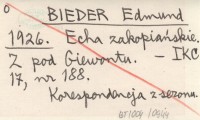 o
BIEDER Edmund
1926. Echa zakopiańskie.
Z pod Giewontu. – IKC
17, nr 188.
Korespondencja z sezonu.